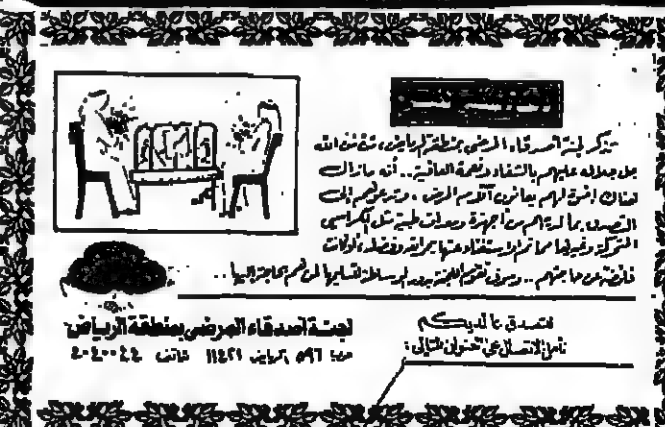 تذكر لجنة أصدقاء المرضى بمنطقة الرياض، من منّ الله
جل جلاله عليهم بالشفاء ونعمة العافية.. أنه مازال
هناك إخوة لهم يعانون آلام المرض، وتدعوهم إلى
التصدق بما لديهم من أجهزة ومعدات طبية مثل الكراسي
المتحركة وغيرها مما تم الاستغناء عنها بحمد الله وفضله، أو كانت
فائضة عن حاجتهم.. وسوف تقوم اللجنة بدور الوساطة لتسليمها لمن هم بحاجة إليها..
للتصدق بما لديكم
نأمل الاتصال على العنوان التالي:
لجنة أصدقاء المرضى بمنطقة الرياض
ص.ب ٥٩٦ الرياض ١١٤٢١ هاتف ٤٠٤٠٠٤٤